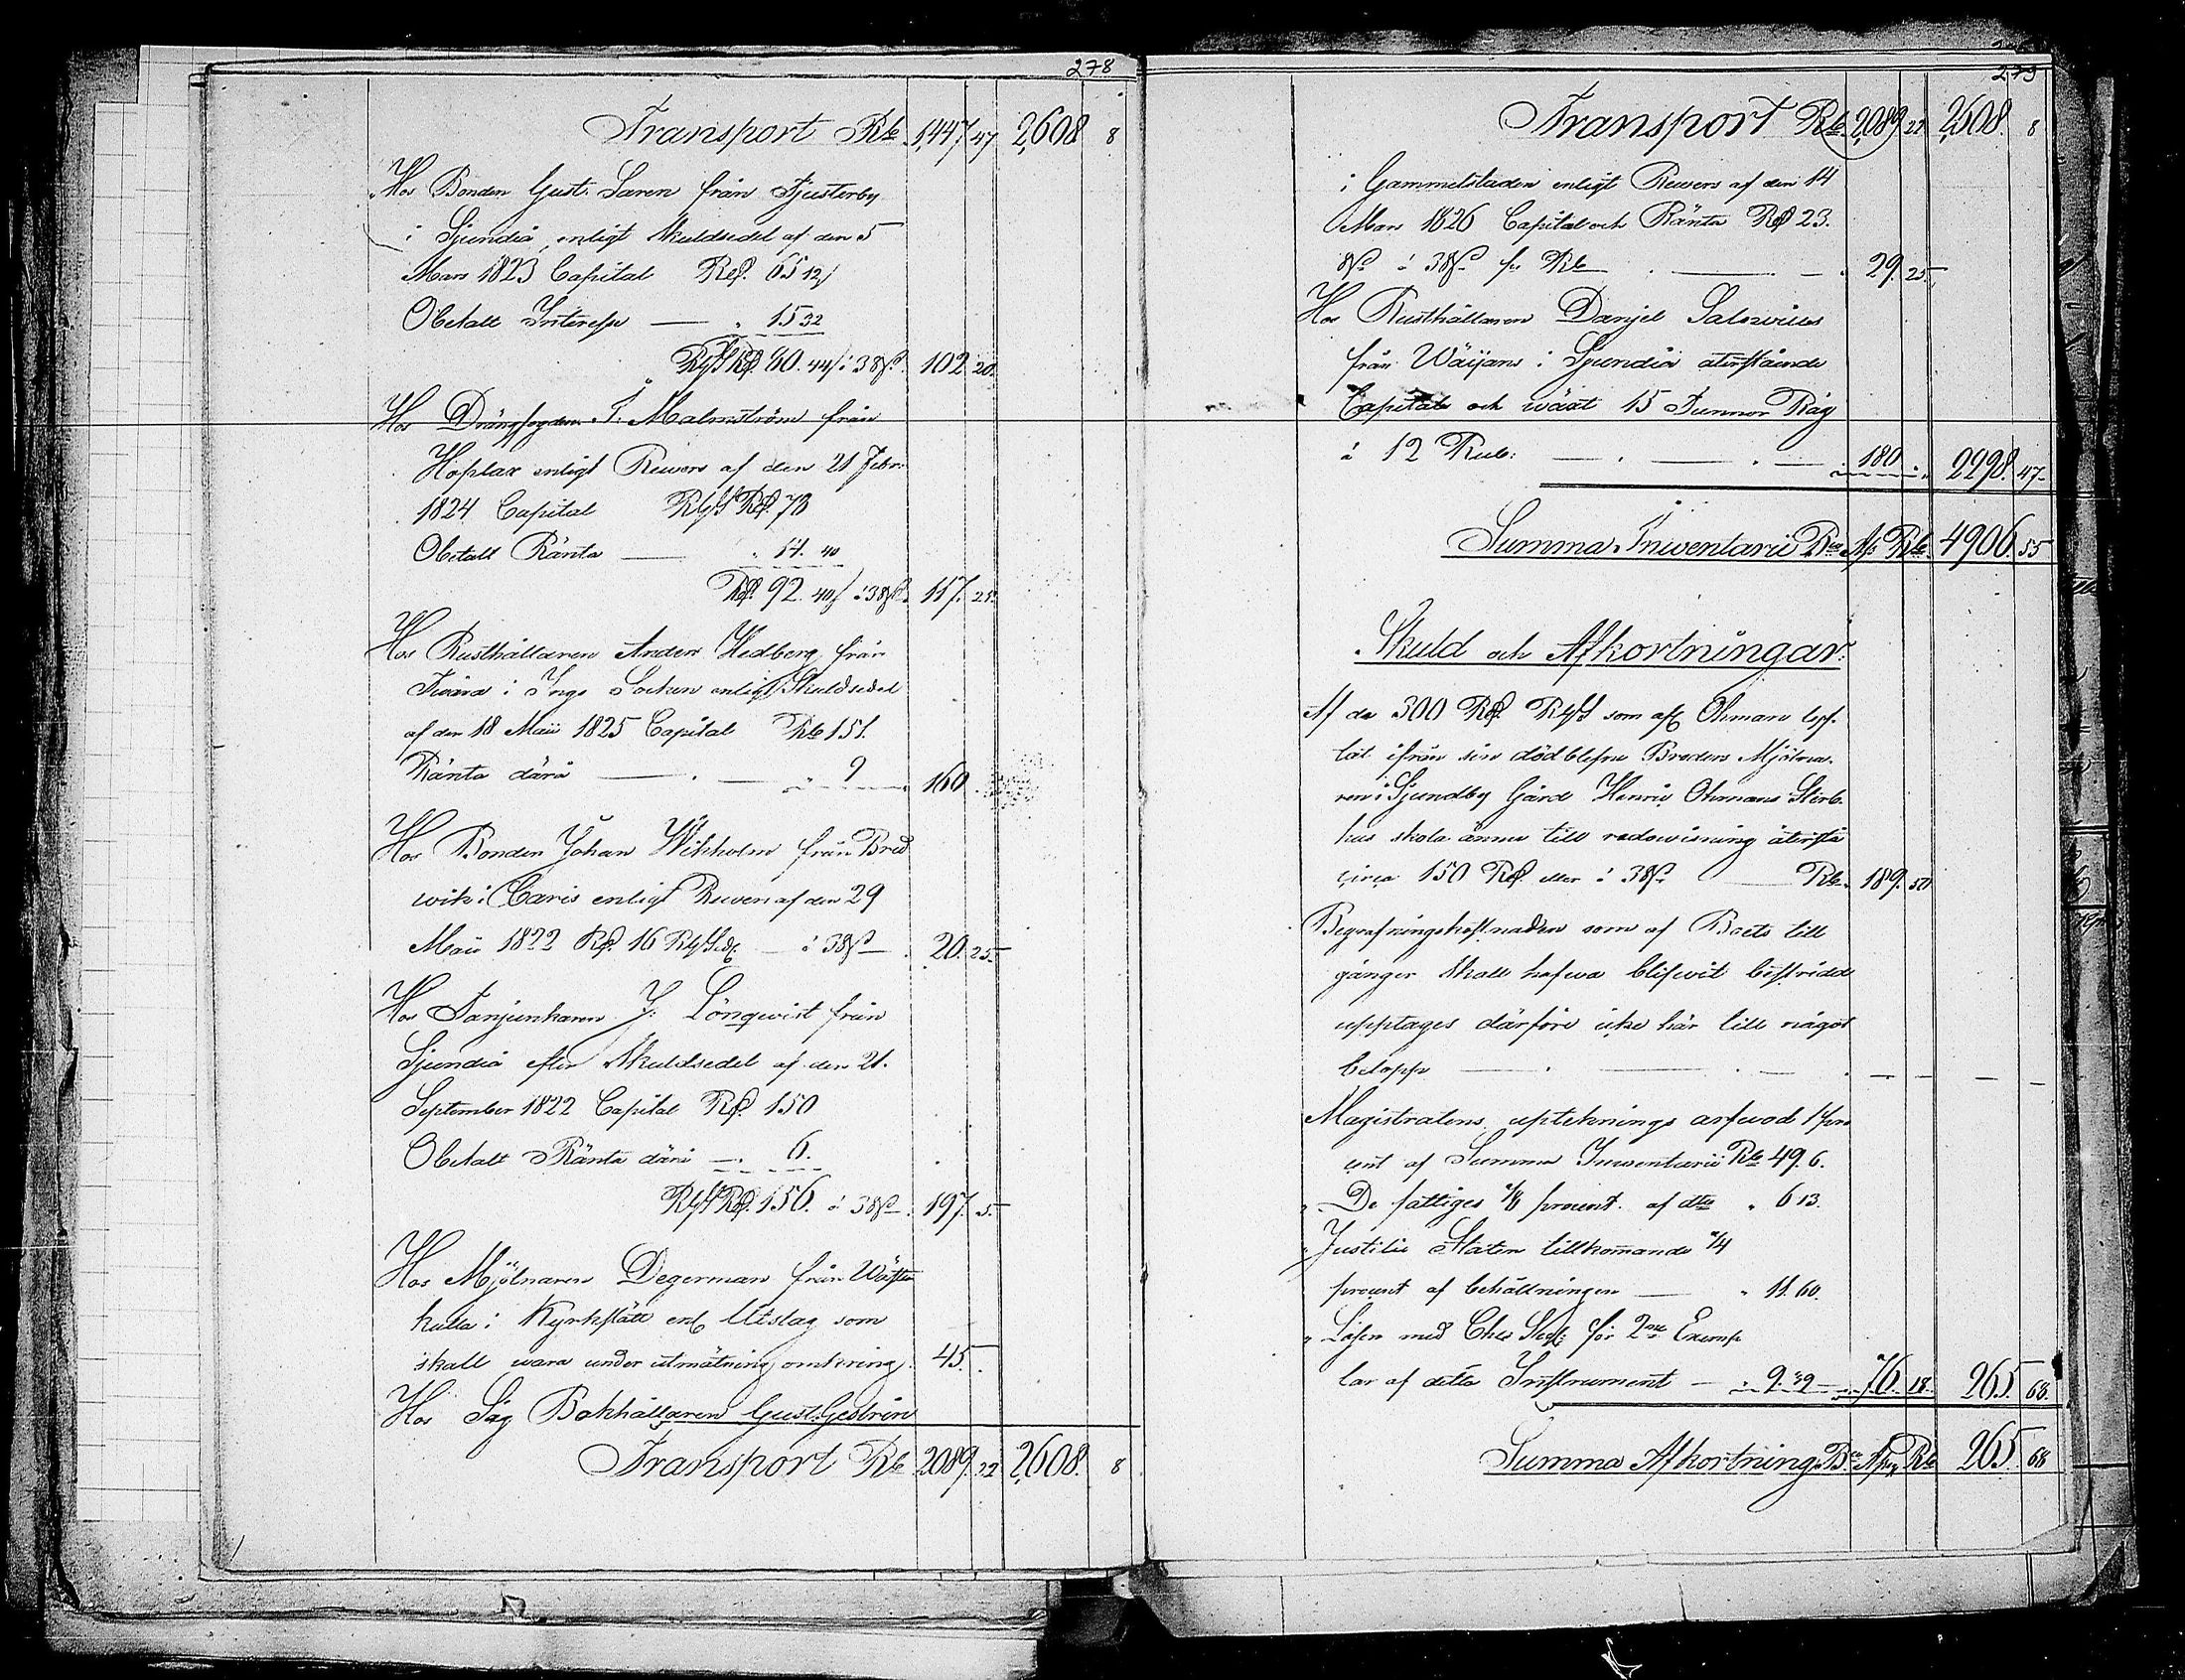 278
Transport Rb. 1,447 47 2,608 8
Hos Bonden Gust: Saren från Tjusterby
i Sjundiå enligt Skuldsedel af den 5
Mars 1823 Capital Rd. 65 12/
Obetalt Interesse — " 15 32
RgSRd. 80. 44/ à 38ß 102. 20.
Hos Drängfogden I. Malmström från
Hoplax enligt Revers af den 21 Febr.
1824 Capital RgS Rd. 78
Obetalt Ränta — " 14. 40
Rd. 92. 40/ à 38ß 117. 25.
Hos Rusthållaren Anders Hedberg från
i Ingo Socken enligt Skuldsedel
af den 18 Maii 1825 Capital Rb 151.
Ränta därå — " 9 160.
Hos Bonden Johan Wikholm från Bred
wik i Caris enligt Revers af den 29
Maii 1822 Rd. 16 RgSds — à 38ß — 20. 25.
Hos Fanjunkaren J: Lönqwist från
Sjundiå efter Skuldsedel af den 21.
September 1822 Capital Rd. 150
Obetalt Ränta därå — 6.
RgSRd. 156. à 38ß 197. 5.
Hos Mjölnaren Degerman från
kulla i Kyrkslätt enl Utslag som
skall wara under utmätning omkring. 45.
Hos Såg Bokhållaren Gust. Gestrin
Transport Rb 2089. 22 2,608. 8
279
Transport Rb. 2,089 22 2,608. 8
i Gammelstaden enligt Revers af den 14
Mars 1826 Capital och Ränta Rd 23.
8ß à 38ß pr Rb — 29. 25.
Hos Rusthållaren Danjel Salovius
från Wäijans i Sjundiå återstående
Capital och wäxt 15 Tunnor Råg
à 12 Rub: — 180 " 2298. 47.
Summa Inventarii Bco Ass Rb. 4906. 55
Skuld och Afkortningar.
Af de 300 Rd. RgS som afl Öhman upf.
tat ifrån sin dödblefne Broders Mjölna.
ren i Sjundby Gård Henric Öhmans Sterb.
hus skola ännu till redowisning återstå
circa 150 Rd. eller à 38ß — Rb. 189. 50
Begrafningskostnaden som af Boets till
gångar skall hafwa blifwit bestridd
upptages därföre icke här till något
belopp — — —
Magistratens uptecknings arfwode 1 pro
cent af Summa Inventarii Rb 49. 6.
" De fattiges 1/8 procent. af dto " 6 13.
" Justitie Staten tillkommande 1/4
procent af behållningen — " 11. 60.
" Lösen med för 2ne Exemp
lar af detta Instrument — " 9. 39 — 76. 18. 265. 68.
Summa Afkortning Bco Ass Rb 265. 68